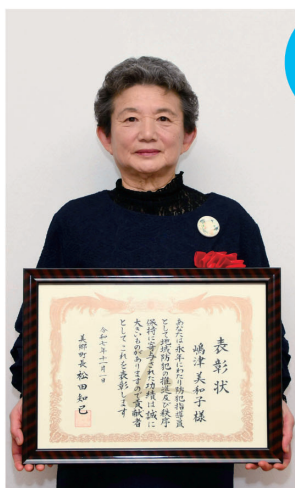 表彰状
嶋津美和子様
あなたは永年にわたり防犯指導員
として地域防犯の推進及び秩序
保持に寄与された功績は誠に
大きいものがありますので貢献者
としてこれを表彰します
令和七年十一月一日
美郷町長 松田知己